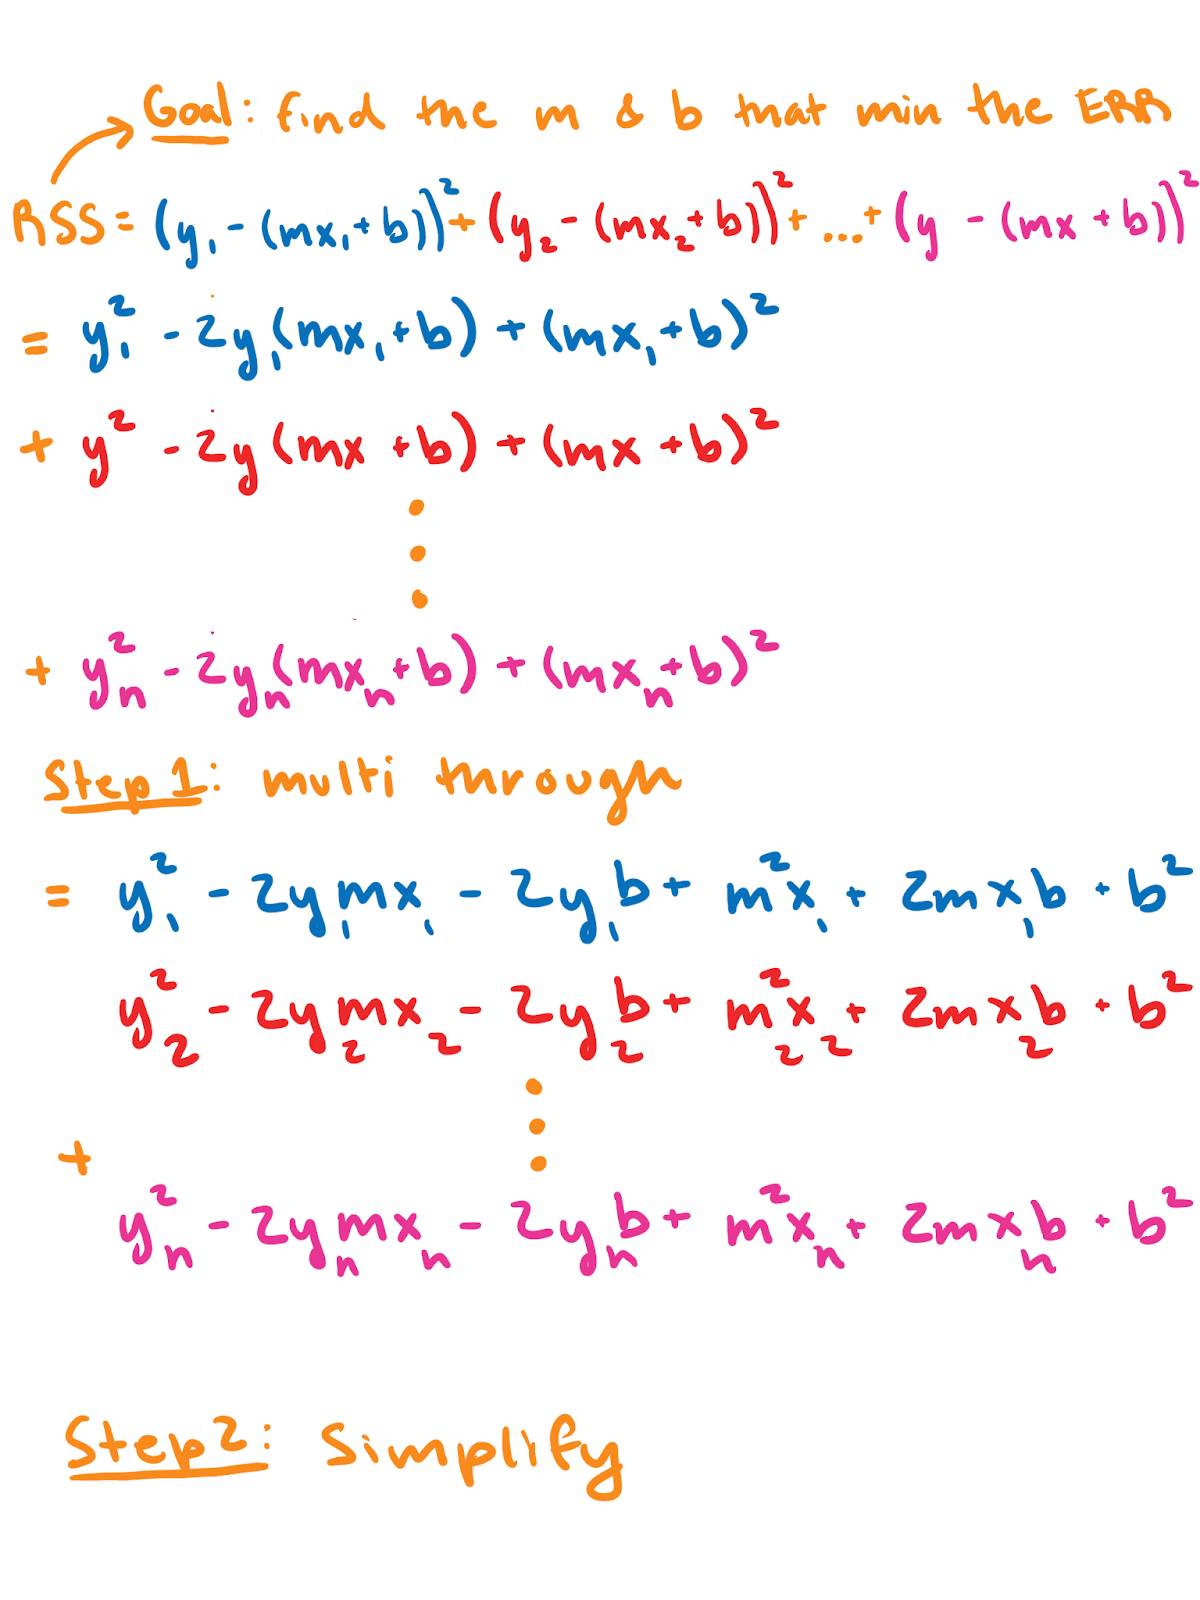 Goal: find the m & b that min the ERR
RSS = (y₁ - (mx₁+b))² + (y₂ - (mx₂+b))² + ...+ (y - (mx +b))²
= y₁² - 2y₁(mx₁+b) + (mx₁+b)²
+ y² - 2y(mx +b) + (mx +b)²
⋮
+ yₙ² - 2yₙ(mxₙ+b) + (mxₙ+b)²
Step 1: multi through
= y₁² - 2y₁mx₁ - 2y₁b + m²x₁ + 2mx₁b + b²
y₂² - 2y₂mx₂ - 2y₂b + m₂²x₂ + 2mx₂b + b²
⋮
+
yₙ² - 2yₙmxₙ - 2yₙb + m²xₙ + 2mxₙb + b²
Step 2: Simplify